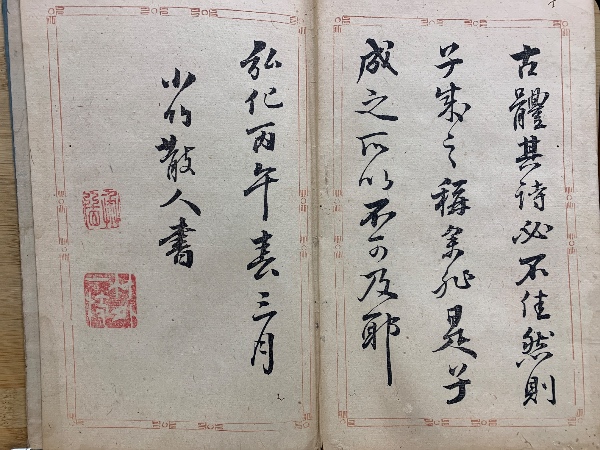 古體其詩必不佳然則
子成之稱是子
成之所以不可及耶
弘化丙午春三月
小竹散人書